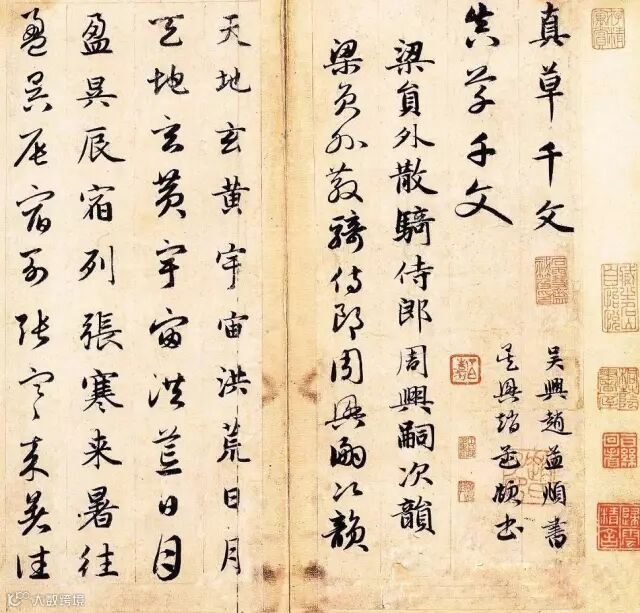 真草千文
吴興趙孟頫書
真草千文
吴興趙孟頫書
梁員外散騎侍郎周興嗣次韻
梁員外散騎侍郎周興嗣次韻
天地玄黃宇宙洪荒日月
天地玄黃宇宙洪荒日月
盈昃辰宿列張寒来暑往
盈昃辰宿列張寒来暑往
大数跨境